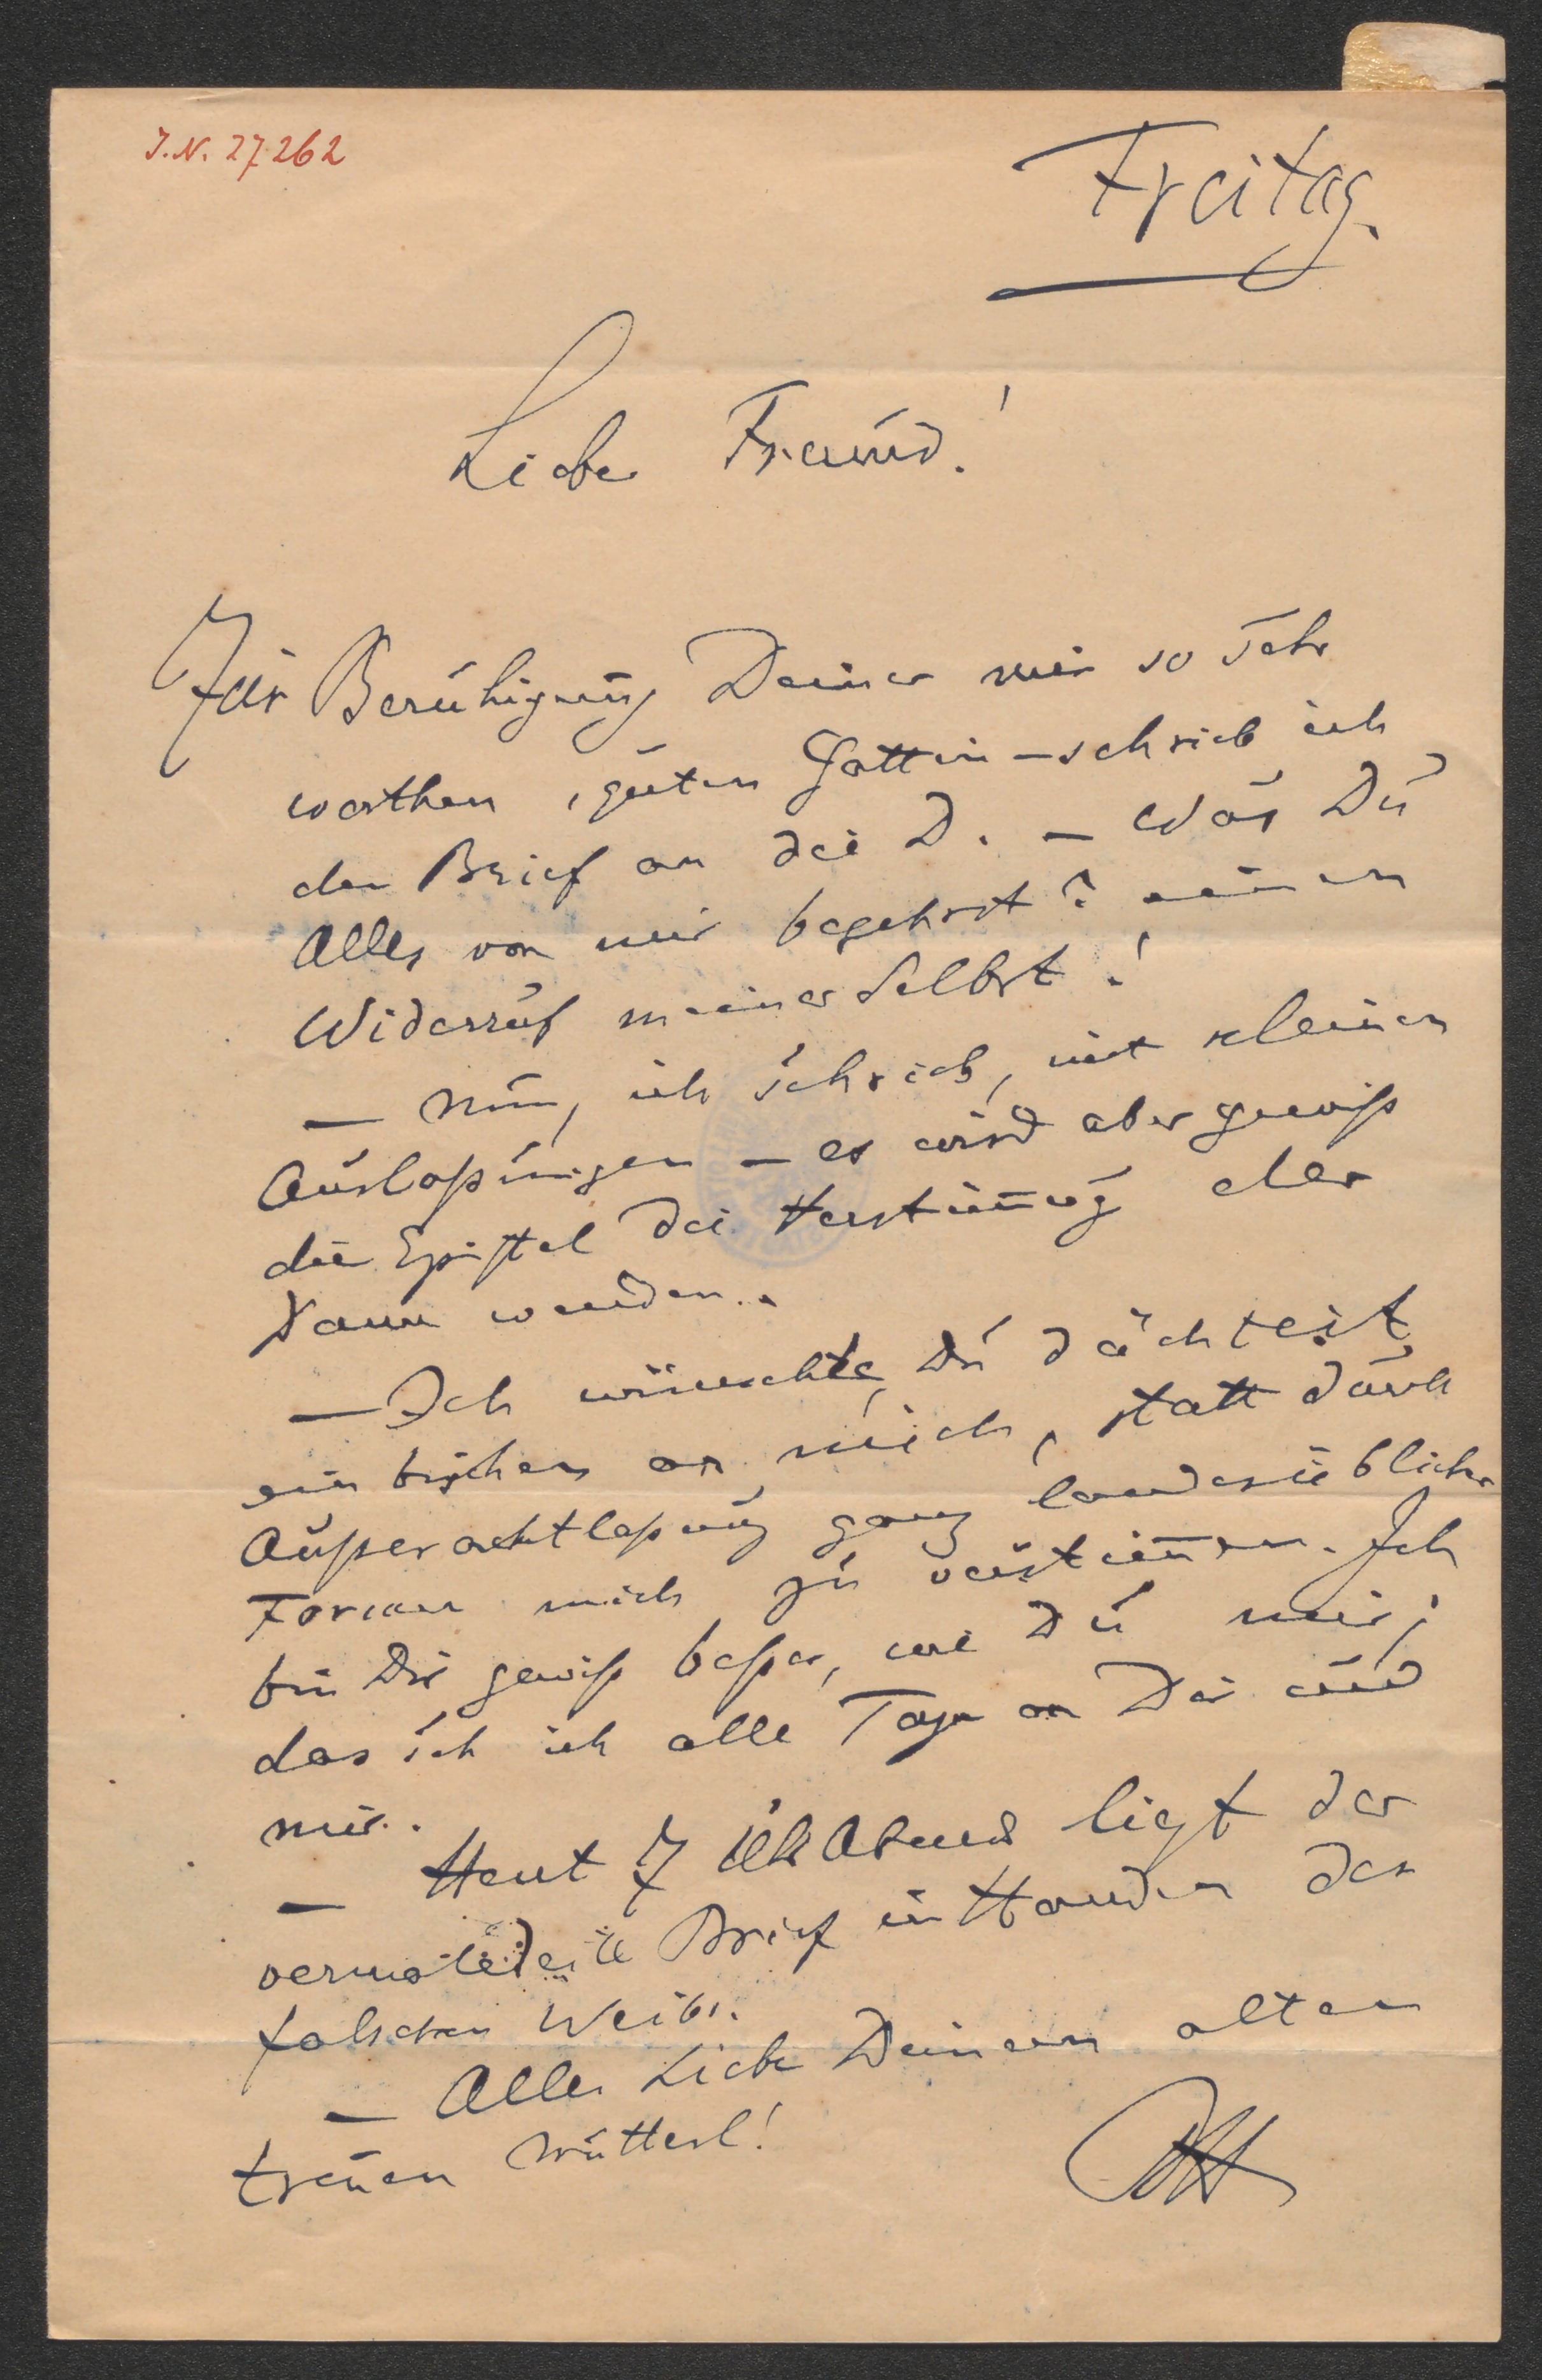 J.N. 27.262
Freitag.
Lieber Freund!
Zur Beruhigung Deiner mir so sehr
werthen, guten Gattin – schrieb ich
den Brief an die D. – Was Du
Alles von mir begehrst? einen
Widerruf meiner Selbst!
– Nun, ich schrieb, mit kleinen
Auslaßungen – es wird aber gewiß
die Epistel die Verstimmung der
Dame wenden..
– Ich wünschte, Du dächtest
ein bischen an mich, statt durch
Außerachtlaßung ganz landesüblicher
Formen mich zu verstimmen. Ich
bin Dir gewiß beßer, wie Du mir;
das seh ich alle Tage an Dir und
mir.
– Heut 7 Uhr Abends liegt der
Brief in Handen des
falschen Weibs.
– Alles Liebe Deinem alten
treuen